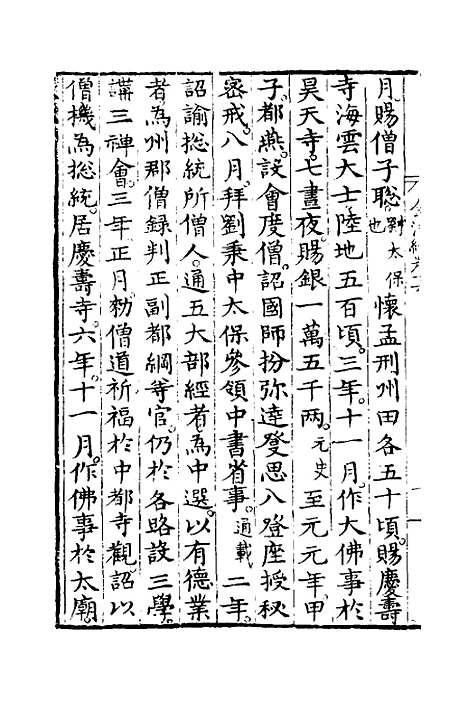 月。賜僧子聡劉太保也懷孟刑州田各五十頃。賜慶壽
寺海雲大士陸地五百頃。三年。十一月。作大佛事於
昊天寺。七晝夜。賜銀一萬五千兩。元史至元元年。甲
子。都燕。設會度僧。詔國師扮弥達發思八登座授秘
密戒。八月。拜劉秉中太保參領中書省事。通載二年。
詔諭捴統所僧人。通五大部經者。為中選。以有德業
者為州郡僧録判正副都綱等官。仍於各路設三學。
講三禅會。三年正月。勑僧道祈福於中都寺觀。詔以
僧機為捴統。居慶壽寺。六年。十一月。作佛事於太廟